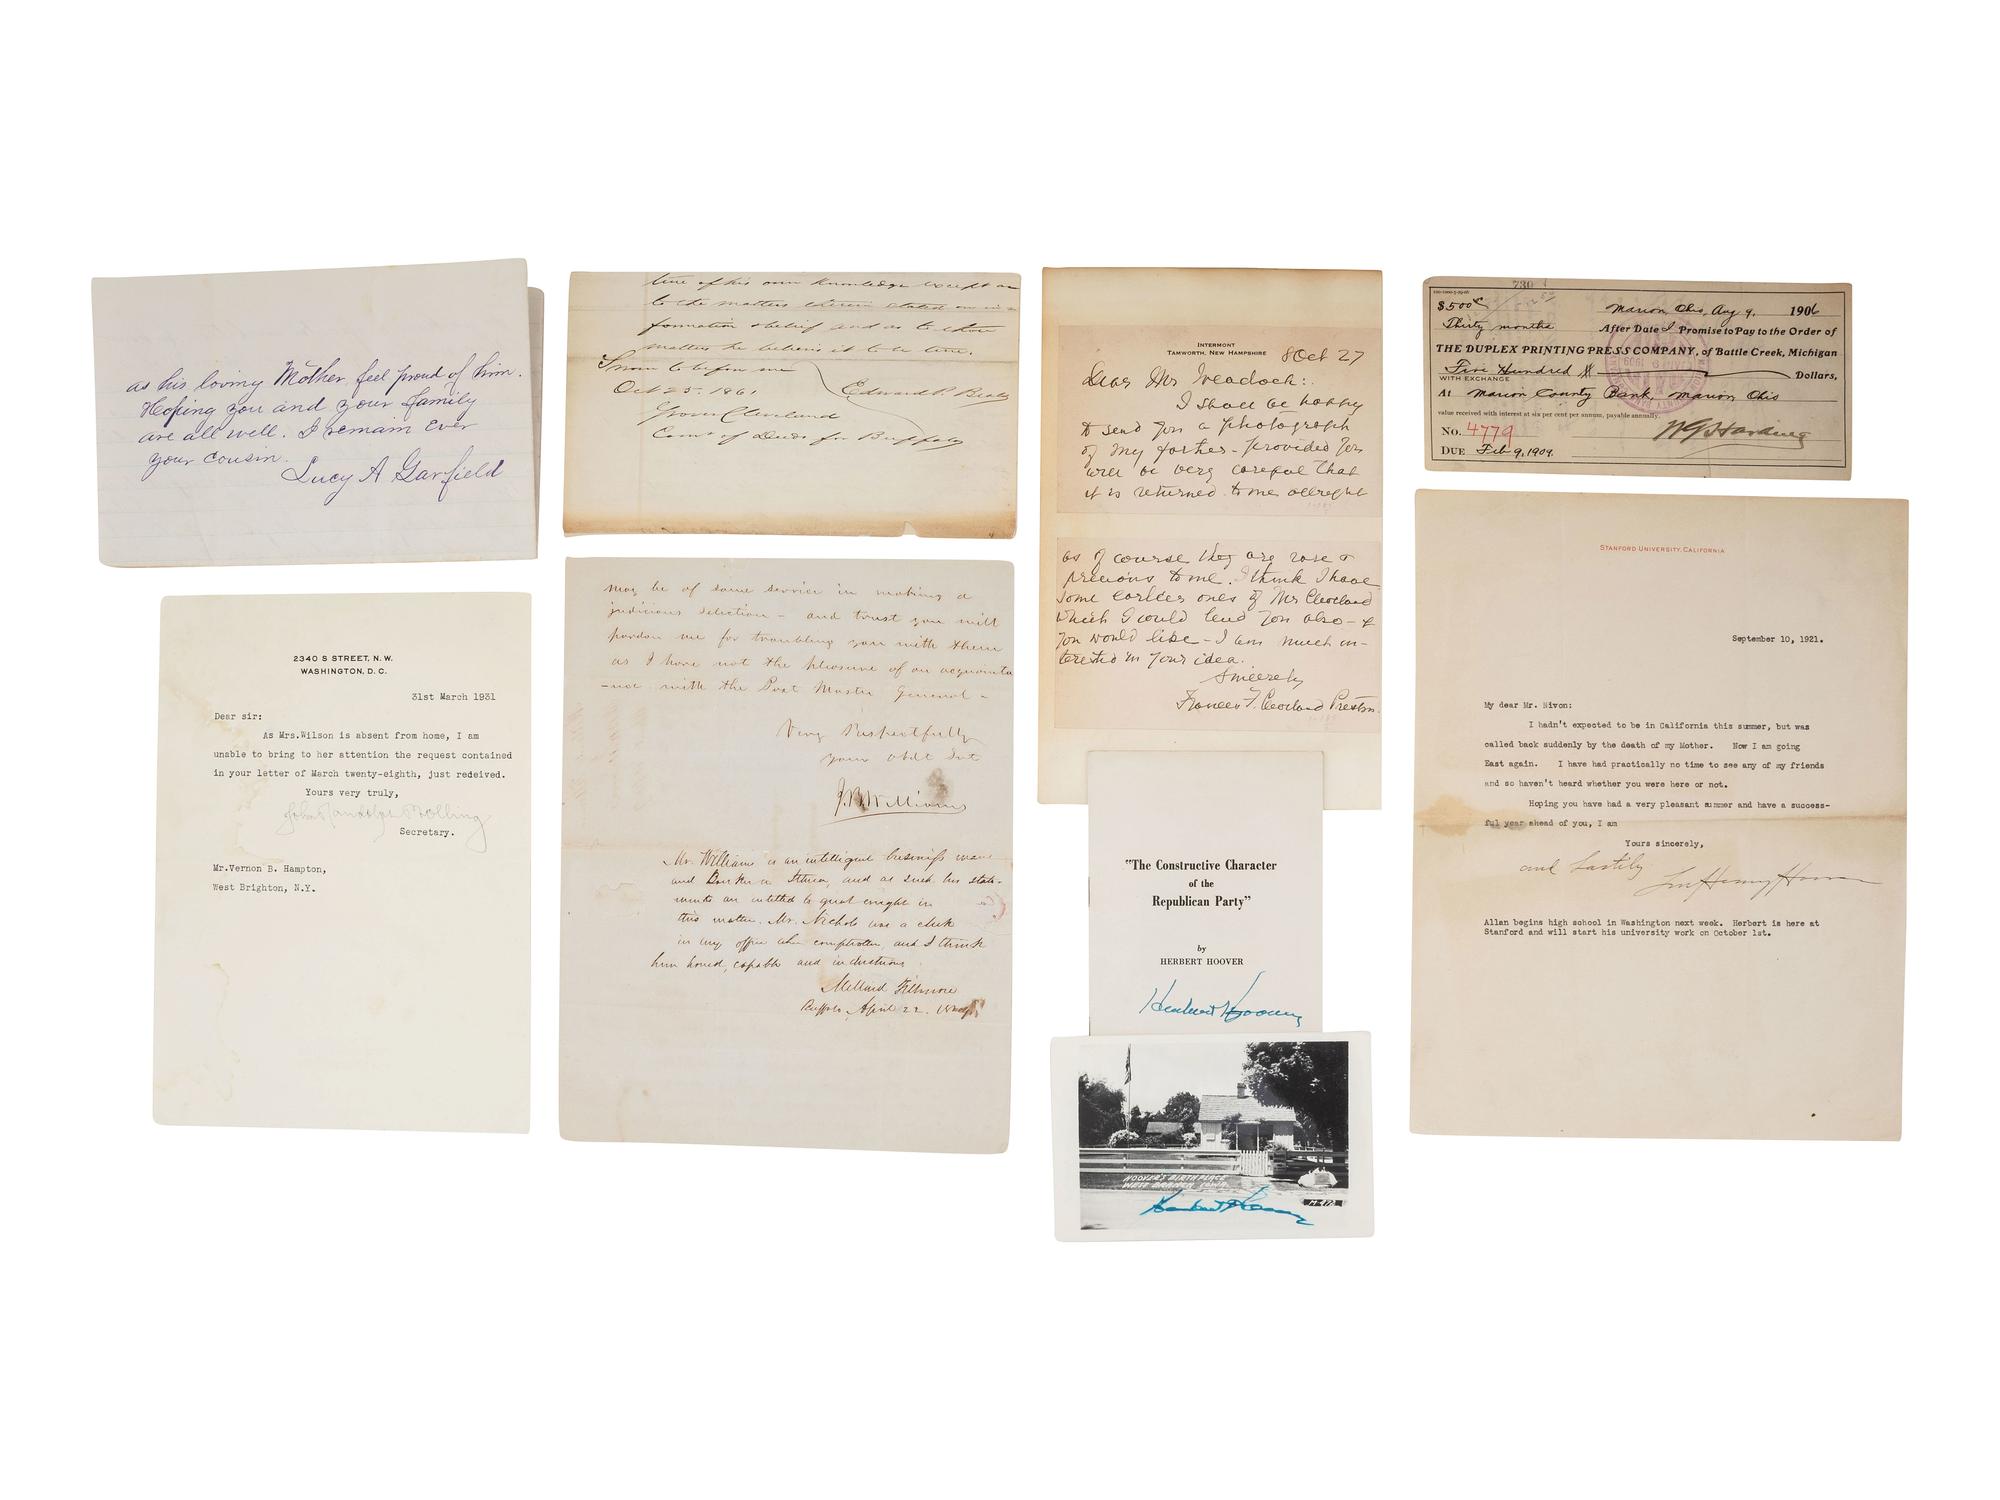 as his loving Mother, feel proud of him.
Hoping you and your family
are all well. I remain ever
your cousin.
Lucy A Garfield
2340 S STREET, N. W.
WASHINGTON, D. C.
31st March 1931
Dear sir:
As Mrs.Wilson is absent from home, I am
unable to bring to her attention the request contained
in your letter of March twenty-eighth, just received.
Yours very truly,
John Randolph Bolling
Secretary.
Mr.Vernon B. Hampton,
West Brighton, N.Y.
true of his own knowledge except as
to the matters therein stated on in-
formation & belief and as to those
matters he believes it to be true.
Sworn to before me
Oct 25. 1861
Edward P. Beals
Grover Cleveland
Comr of Deeds for Buffalo
may be of some service in making a
judicious selection - and trust you will
pardon me for troubling you with them
as I have not the pleasure of an acquainta
-nce with the Post Master General -
Very Respectfully
your obdt Svt
J.B. Williams
Mr. Williams is an intelligent business man
and Banker in Ithica, and as such his state-
ments are intitled to great weight in
this matter. Mr. Nichols was a clerk
in my office when comptroller, and I think
him honest, capable and industrious.
Millard Fillmore
Buffalo, April 22.
INTERMONT
TAMWORTH, NEW HAMPSHIRE
8 Oct 27
Dear Mr Weadock:
I shall be happy
to send you a photograph
of my father - provided you
will be very careful that
it is returned to me allright
as of course they are rare &
precious to me. I think I have
some earlier ones of Mr Cleveland
which I could lend you also - if
you would like - I am much in-
terested in your idea.
Sincerely
Frances F. Cleveland Preston.
"The Constructive Character
of the
Republican Party"
by
HERBERT HOOVER
Herbert Hoover
HOOVER'S BIRTHPLACE
WEST BRANCH, IOWA
M-472
Herbert Hoover
730
$500
Marion, Ohio, Aug 9, 1906
Thirty months After Date I Promise to Pay to the Order of
THE DUPLEX PRINTING PRESS COMPANY, of Battle Creek, Michigan
Five Hundred Dollars,
WITH EXCHANGE
At Marion County Bank, Marion Ohio
value received with interest at six per cent per annum, payable annually.
No. 4779
W G Harding
DUE Feb 9, 1909.
STANFORD UNIVERSITY, CALIFORNIA
September 10, 1921.
My dear Mr. Nivon:
I hadn't expected to be in California this summer, but was
called back suddenly by the death of my Mother. Now I am going
East again. I have had practically no time to see any of my friends
and so haven't heard whether you were here or not.
Hoping you have had a very pleasant summer and have a success-
ful year ahead of you, I am
Yours sincerely,
and hastily
Lou Henry Hoover
Allan begins high school in Washington next week. Herbert is here at
Stanford and will start his university work on October 1st.